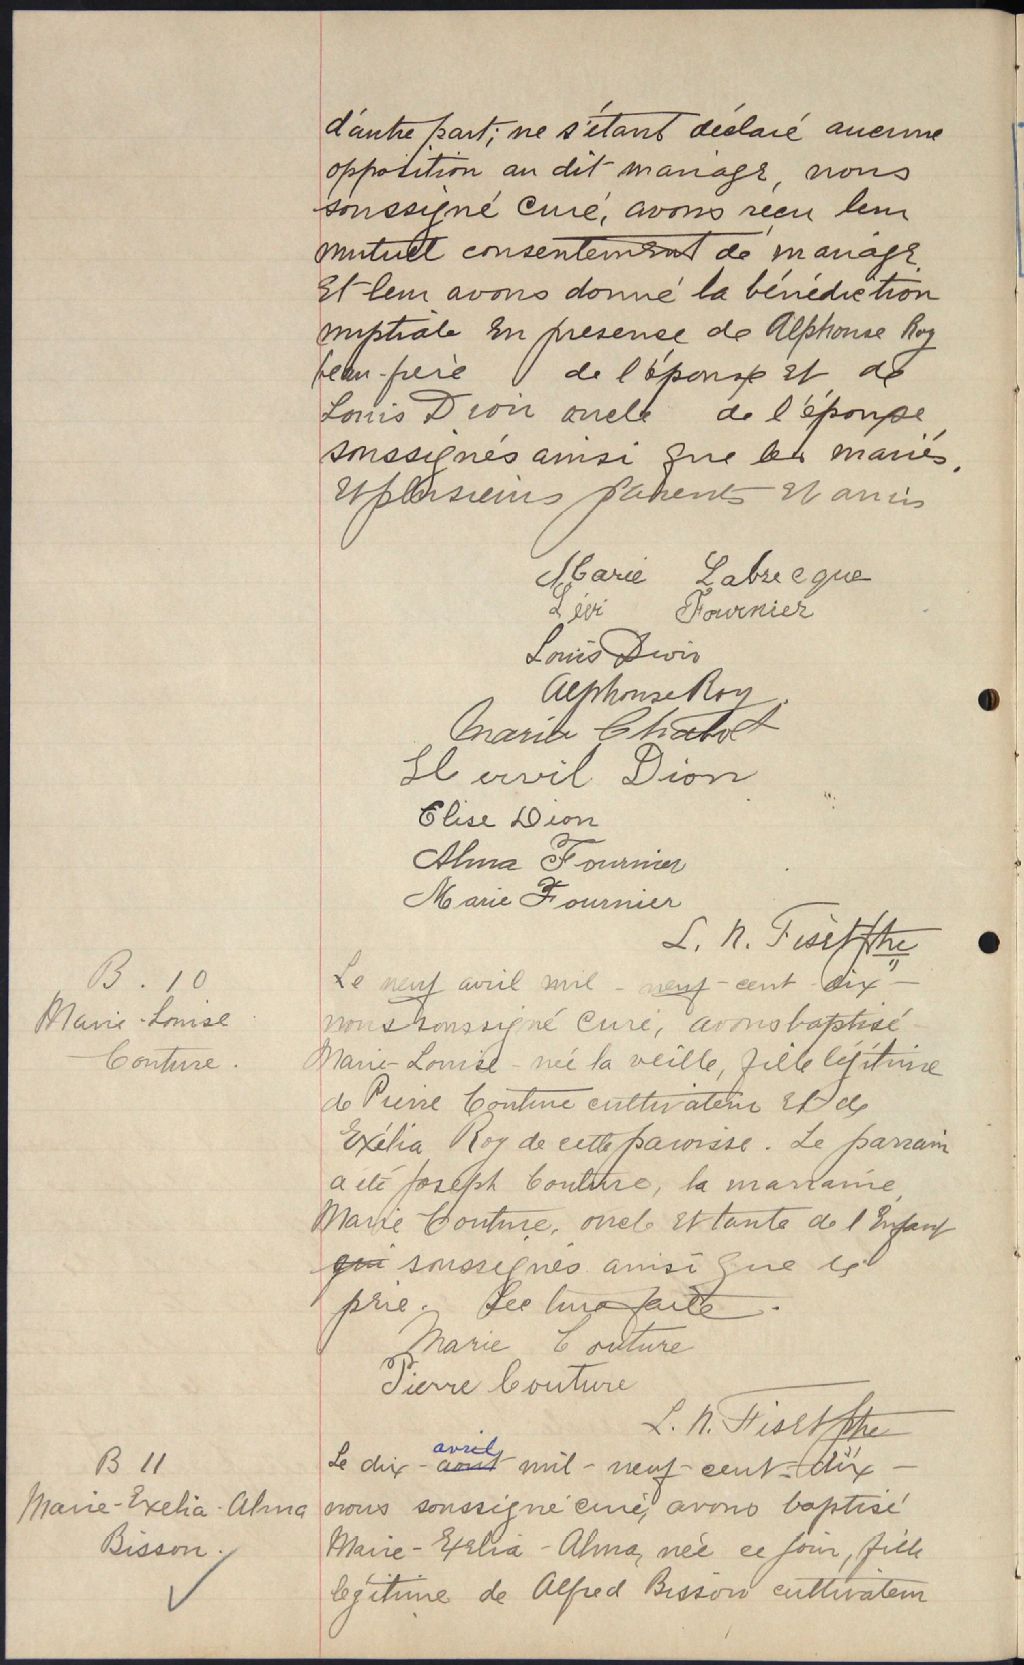 d'autre part; ne s'étant déclaré aucune
opposition au dit mariage, nous
soussigné curé, avons reçu leur
mutuel consentement de mariage
Et leur avons donné la bénédiction
nuptiale En presense de Alphonse Roy
beau-père de l'épouse Et de
Louis Dion oncle de l'épouse
soussignés ainsi que les mariés.
Et plusieurs parents Et amis
Marie Labrecque
Lévi Fournier
Louis Dion
Alphonse Roy
Maria Chabot
Dion
Elise Dion
Alma Fournier
Marie Fournier
L. N. Fiset Ptre
B. 10
Marie-Louise
Couture.
Le neuf avril mil-neuf-cent-dix-
nous soussigné curé, avons baptisé
Marie-Louise née la veille, fille légitime
de Pierre Couture cultivateur Et de
Exélia Roy de cette paroisse. Le parrain
a été Joseph Couture, la marraine
Marie Couture, oncle Et tante de l'Enfant
qui soussignés ainsi que le
père. Lecture faite.
Marie Couture
Pierre Couture
L. N. Fiset Ptre
B 11
Marie-Exelia-Alma
Bisson.
avril
Le dix-aout mil-neuf-cent-dix-
nous soussigné curé, avons baptisé
Marie-Exelia-Alma, née ce jour, fille
légitime de Alfred Bisson cultivateur